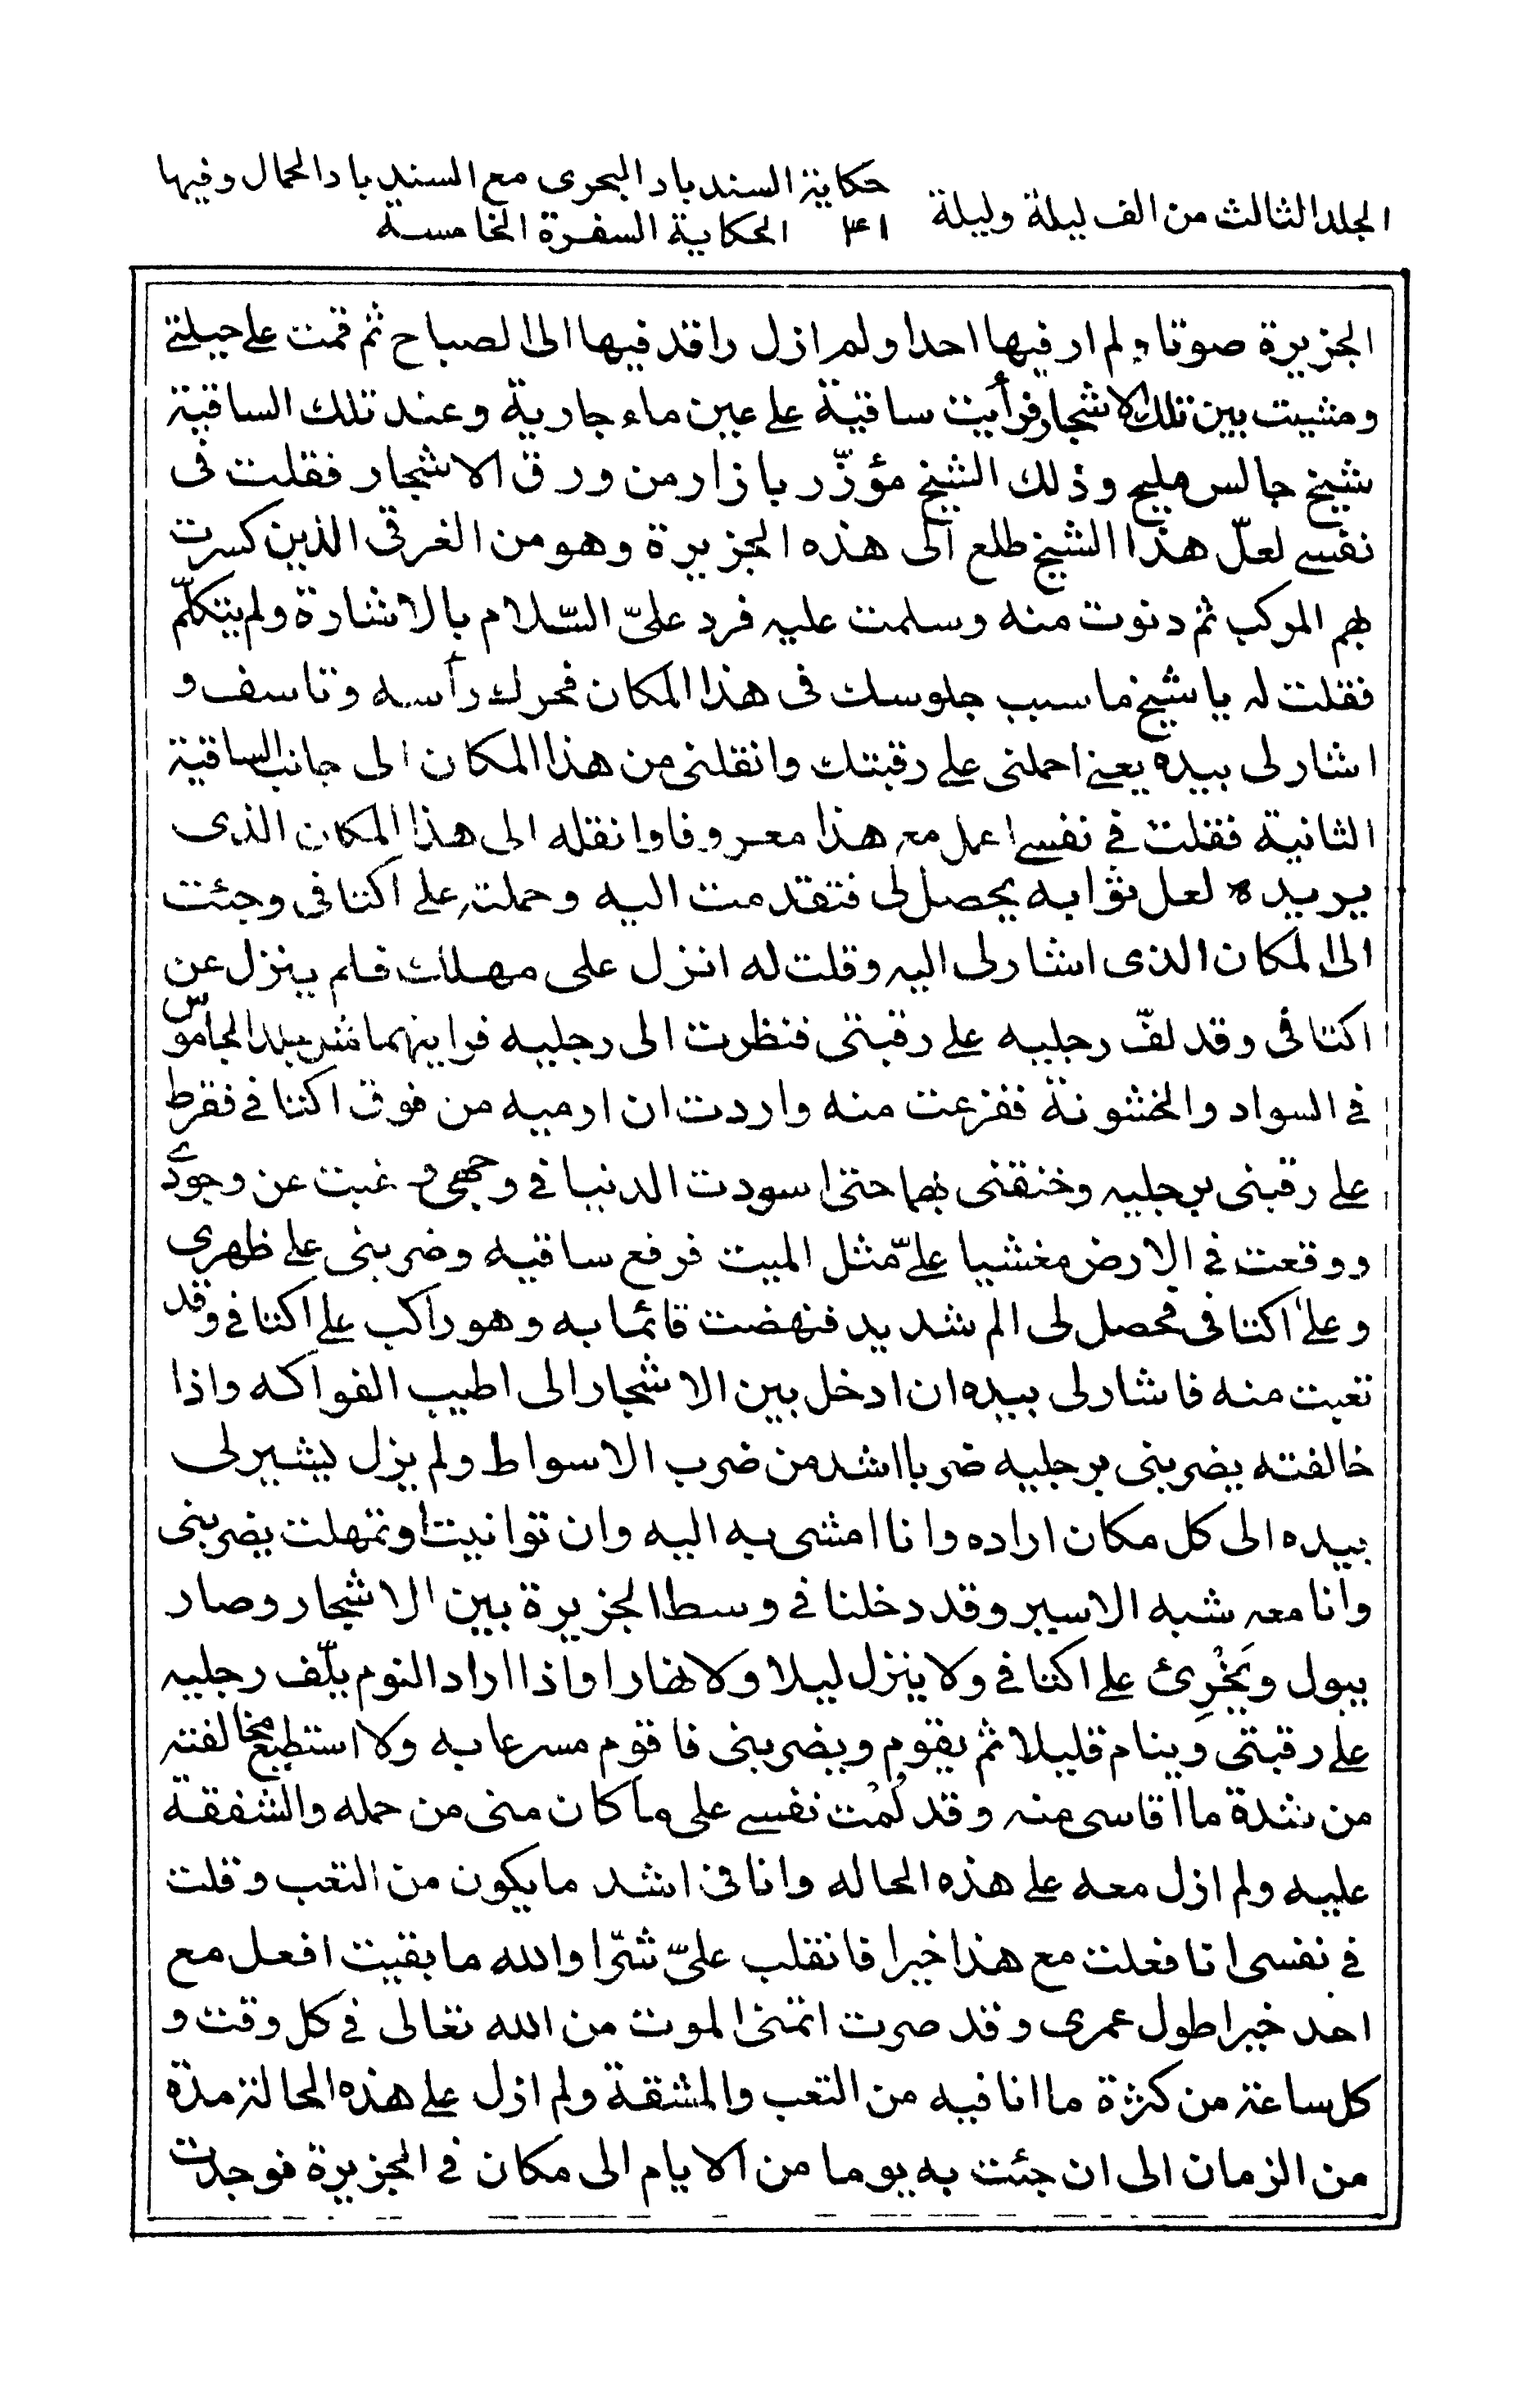 المجلد الثالث من الف ليلة وليلة
حكاية السندباد البحرى مع السندباد الحمال وفيها
٤١ الحكاية السفرة الخامسة
الجزيرة صوتا ولم ار فيها احدا ولم ازل راقد فيها الى الصباح ثم قمت على حيلتى
ومشيت بين تلك الاشجار فرأيت ساقية على عين ماء جارية وعند تلك الساقية
شيخ جالس مليح وذلك الشيخ مؤزّر بازار من ورق الاشجار فقلت فى
نفسى لعلّ هذا الشيخ طلع الى هذه الجزيرة وهو من الغرقى الذين كسرت
بهم المركب ثم دنوت منه وسلمت عليه فرد علىّ السّلام بالاشارة ولم يتكلّم
فقلت له يا شيخ ما سبب جلوسك فى هذا المكان فحرك رأسه وتاسف و
اشار لى بيده يعنى احملنى على رقبتك وانقلنى من هذا المكان الى جانب الساقية
الثانية فقلت فى نفسى اعمل مع هذا معروفا وانقله الى هذا المكان الذى
يريده لعل ثوابه يحصل لى فتقدمت اليه وحملته على اكتافى وجئت
الى المكان الذى اشار لى اليه وقلت له انزل على مهلك فلم ينزل عن
اكتافى وقد لفّ رجليه على رقبتى فنظرت الى رجليه فرايتهما مثل جلد الجاموس
فى السواد والخشونة ففزعت منه واردت ان ارميه من فوق اكتافى فقرط
على رقبتى برجليه وخنقنى بهما حتى اسودت الدنيا فى وجهى و غبت عن وجودى
ووقعت فى الارض مغشيا علىّ مثل الميت فرفع ساقيه وضربنى على ظهرى
وعلى اكتافى فحصل لى الم شديد فنهضت قائما به وهو راكب على اكتافى وقد
تعبت منه فاشار لى بيده ان ادخل بين الاشجار الى اطيب الفواكه واذا
خالفته يضربنى برجليه ضربا اشد من ضرب الاسواط ولم يزل يشير لى
بيده الى كل مكان اراده وانا امشى به اليه وان توانيت او تمهلت يضربنى
وانا معه شبه الاسير وقد دخلنا فى وسط الجزيرة بين الاشجار وصار
يبول ويَخْرِئ على اكتافى ولا ينزل ليلا ولا نهارا واذا اراد النوم يلّف رجليه
على رقبتى وينام قليلا ثم يقوم ويضربنى فاقوم مسرعا به ولا استطيع مخالفته
من شدة ما اقاسى منه وقد لُمْت نفسى على ما كان منى من حمله والشفقة
عليه ولم ازل معه على هذه الحاله وانا فى اشد ما يكون من التعب وقلت
فى نفسى انا فعلت مع هذا خيرا فانقلب علىّ شرّا والله ما بقيت افعل مع
احد خيرا طول عمرى وقد صرت اتمنى الموت من الله تعالى فى كل وقت و
كل ساعة من كثرة ما انا فيه من التعب والمشقة ولم ازل على هذه الحالة مدة
من الزمان الى ان جئت به يوما من الايام الى مكان فى الجزيرة فوجدت